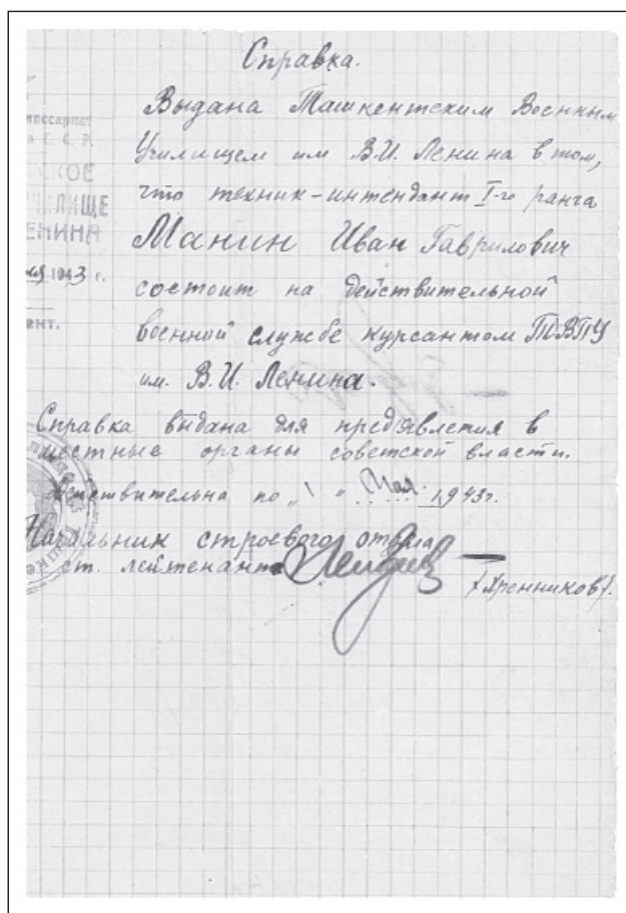 Справка.
Выдана Ташкентским Военным
Училищем им В.И. Ленина в том,
что техник-интендант I-го ранга
Манин Иван Гаврилович
состоит на действительной
военной службе курсантом
им. В.И. Ленина.
Справка выдана для предъявления в
местные органы советской власти.
действительна по "1" Мая 1943г.
Начальник строевого отдела
ст. лейтенант
/Хренников/.
С. С. Р.
СКОЕ
ЛИЩЕ
ЕНИНА
1943 г.
ЕНТ.